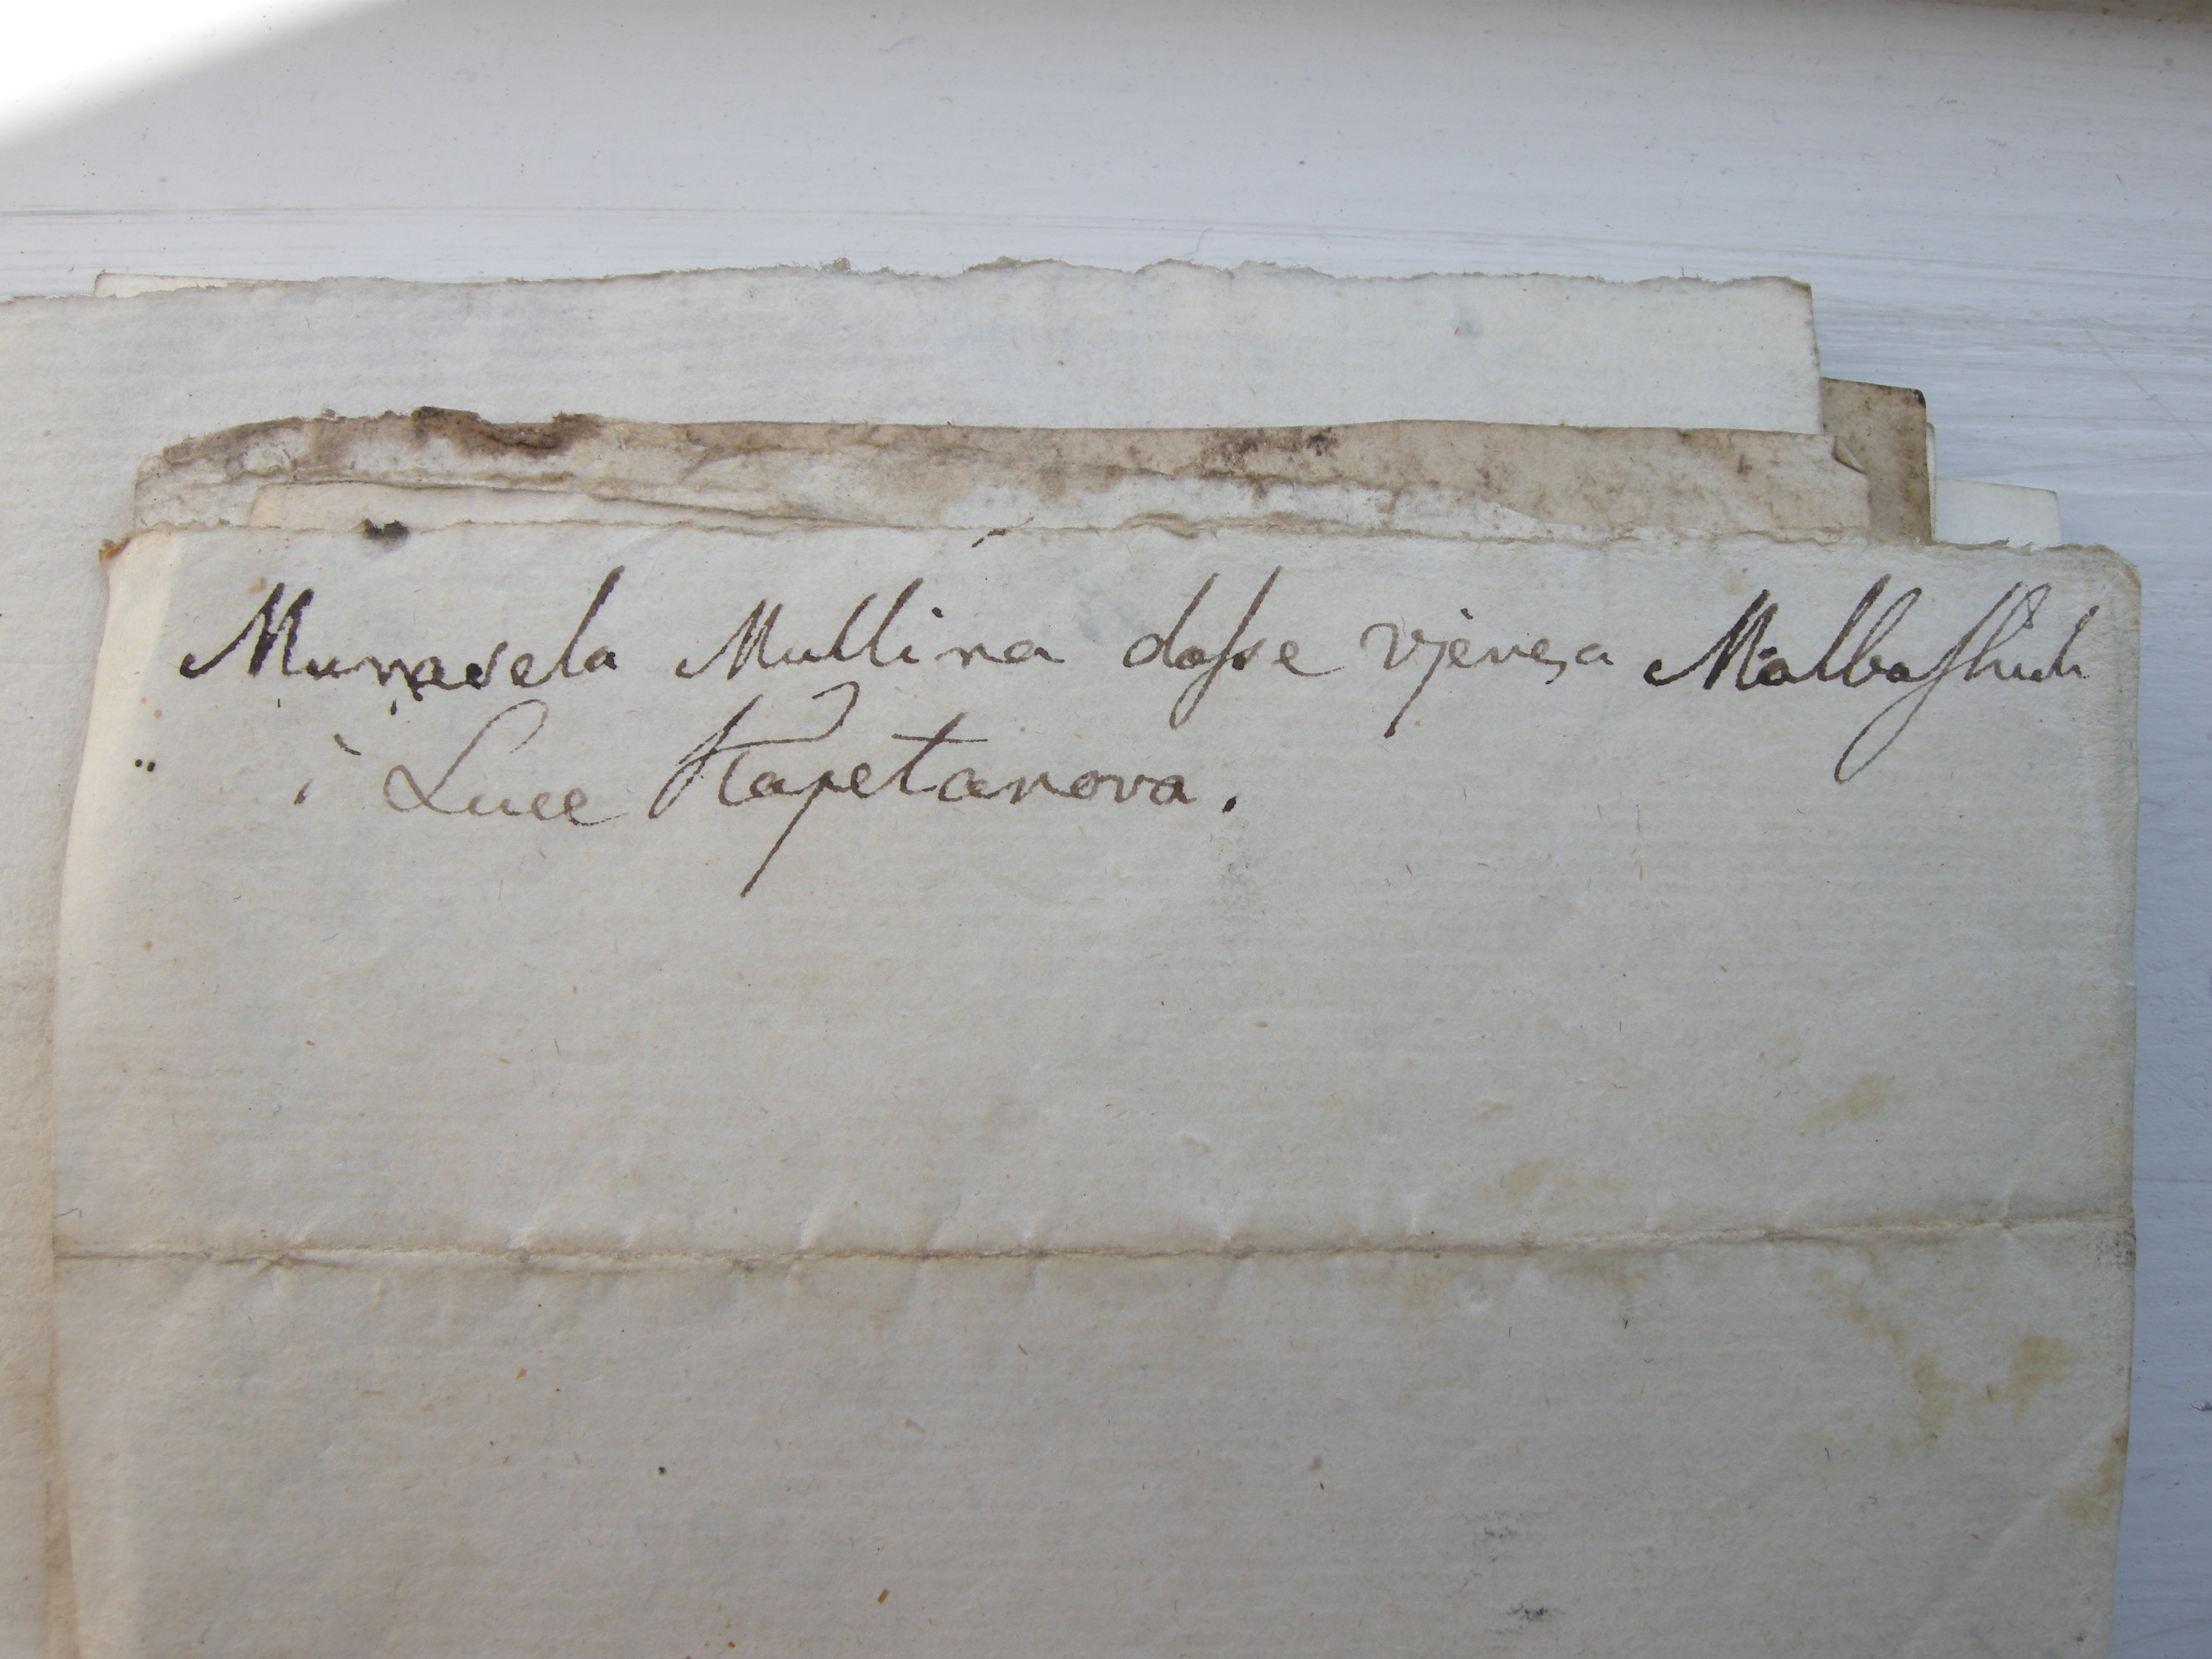 Murasela Mullina dasse vjença Malbashich
i Luce Kapetanova.